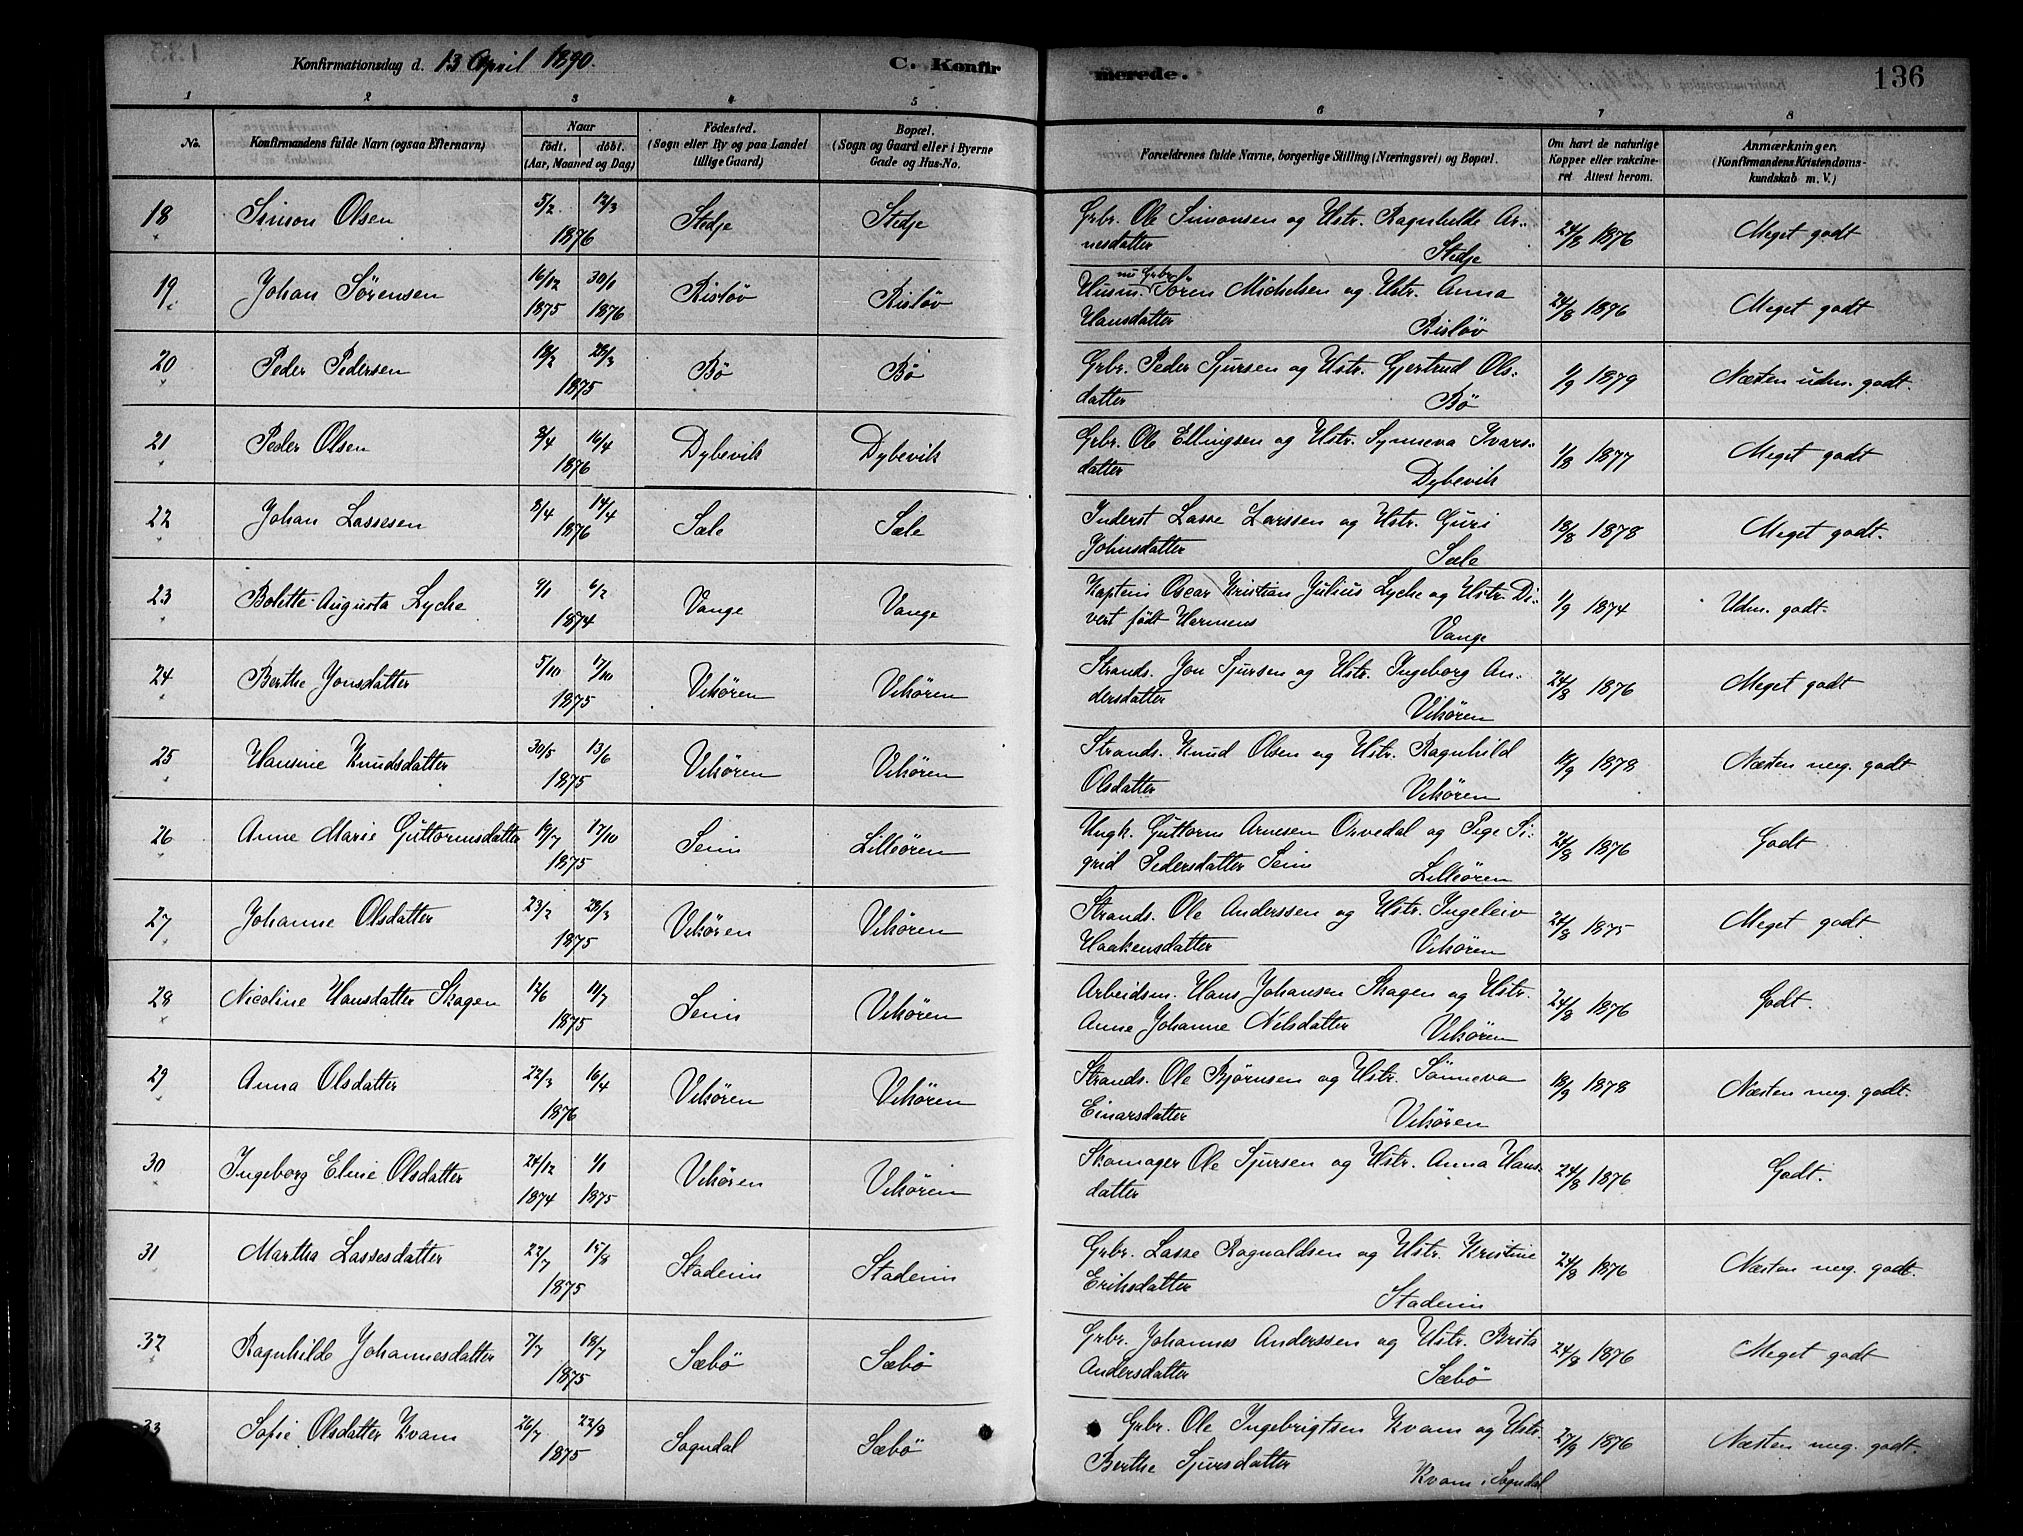 Konfirmationsdag d. 13 April 1890.
C. Konfir
merede.
136
1 2 3 4 5 6 7 8
No.
Konfirmandens fulde Navn (ogsaa Efternavn)
Naar
födt. döbt.
(Aar, Maaned og Dag)
Födested.
(Sogn eller By og paa Landet
tillige Gaard)
Bopæl.
(Sogn og Gaard eller i Byerne
Gade og Hus-No.
Forældrenes fulde Navne, borgerlige Stilling (Næringsvei) og Bopæl.
Om havt de naturlige
Kopper eller vakcine-
ret Attest herom.
Anmærkninger.
(Konfirmandens Kristendoms-
kundskab m. V.)
18 Simon Olsen 5/2 12/3 Stedje Stedje Grbr. Ole Simonsen og Hstr. Ragnhilde Ar- 24/8 1876 Meget godt
1876 nesdatter Stedje
19 Johan Sörensen 16/12 30/1 Risløv Risløv Husm. nu Grbr. Sören Michelsen og Hstr. Anna 24/8 1876 Meget godt
1875 1876 Hansdatter Risløv
20 Peder Pedersen 18/2 28/3 Bø Bø Grbr. Peder Sjursen og Hstr. Gjertrud Ols- 1/9 1879 Næsten udm. godt.
1875 datter Bø
21 Peder Olsen 8/4 16/4 Dybevik Dybevik Grbr. Ole Ellingsen og Hstr. Synneva Ivars- 1/8 1877 Meget godt
1876 datter Dybevik
22 Johan Lassesen 8/4 14/4 Sæle Sæle Inderst Lasse Larssen og Hstr. Guri 18/8 1878 Meget godt.
1876 Johnsdatter Sæle
23 Bolette Augusta Lyche 9/1 6/2 Vange Vange Kaptein Oscar Kristian Julius Lyche og Hstr. Di- 1/9 1874 Udm. godt.
1874 vert født Harmens Vange
24 Berthe Jonsdatter 5/10 17/10 Vikören Vikören Strands. Jon Sjursen og Hstr. Ingeborg An- 24/8 1876 Meget godt
1875 dersdatter Vikören
25 Hansine Knudsdatter 30/5 13/6 Vikören Vikören Strands. Knud Olsen og Hstr. Ragnhild 18/9 1878 Næsten meg. godt
1875 Olsdatter Vikören
26 Anne Marie Guttormsdatter 19/7 17/10 Seim Lilleören Ungk. Guttorm Arnesen Orvedal og Pige Si- 24/8 1876 Godt
1875 grid Pedersdatter Seim Lilleören
27 Johanne Olsdatter 23/2 28/3 Vikören Vikören Strands. Ole Anderssen og Hstr. Ingeleiv 24/8 1875 Meget godt
1875 Haakensdatter Vikören
28 Nicoline Hansdatter Skagen 12/6 11/7 Seim Vikören Arbeidsm. Hans Johansen Skagen og Hstr. 24/8 1876 Godt.
1875 Anne Johanne Nilsdatter Vikören
29 Anna Olsdatter 22/3 16/4 Vikören Vikören Strands. Ole Bjørnsen og Hstr. Sönneva 18/9 1878 Næsten meg. godt.
1876 Einarsdatter Vikören
30 Ingeborg Eline Olsdatter 24/12 1/1 Vikören Vikören Skomager Ole Sjursen og Hstr. Anna Hans- 24/8 1876 Godt.
1874 1875 datter
31 Martha Lassesdatter 22/7 15/8 Stadeim Stadeim Grbr. Lasse Ragnaldsen og Hstr. Kristine 24/8 1876 Næsten meg. godt.
1875 Eriksdatter Stadeim
32 Ragnhilde Johannesdatter 7/7 18/7 Sæbö Sæbö Grbr. Johannes Anderssen og Hstr. Brita 24/8 1876 Meget godt
1875 Andersdatter Sæbö
33 Sofie Olsdatter Kvam 26/7 22/8 Sogndal Sæbö Grbr. Ole Ingebrigtsen Kvam og Hstr. 27/9 1876 Næsten meg. godt.
1875 Berthe Sjursdatter Kvam i Sogndal